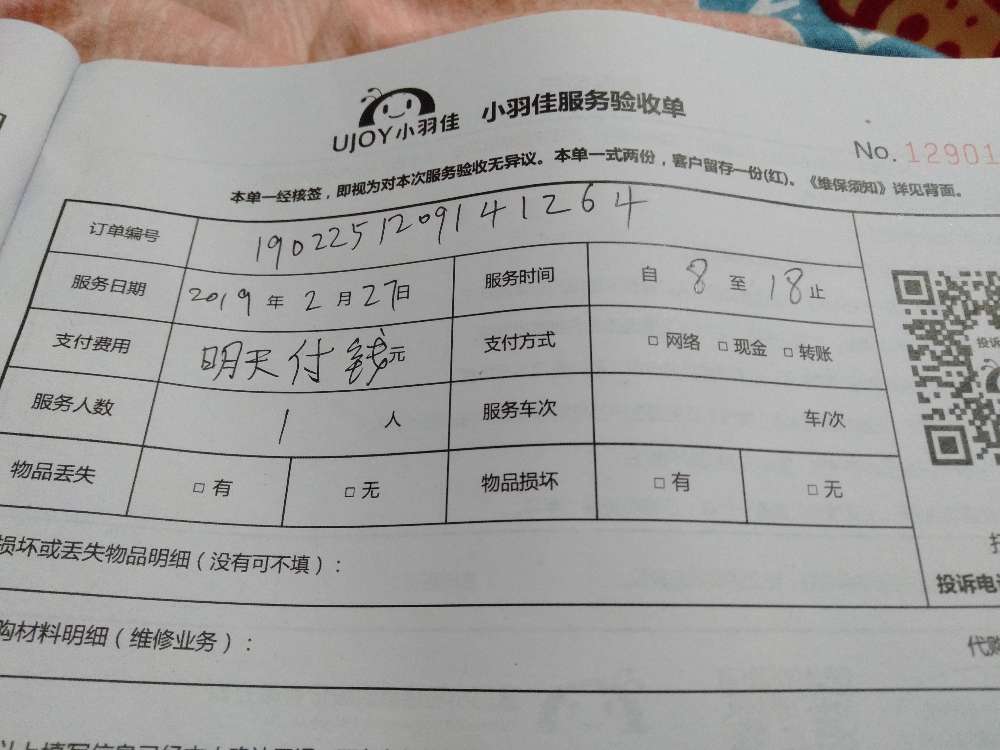 UJOY小羽佳 小羽佳服务验收单
No. 12901
本单一经核签，即视为对本次服务验收无异议。本单一式两份，客户留存一份(红)。《维保须知》详见背面。
订单编号 190225120914 1264
服务日期 2019 年 2 月 27日 服务时间 自 8 至 18 止
支付费用 明天付钱元 支付方式 □ 网络 □ 现金 □ 转账
服务人数 1 人 服务车次 车/次
物品丢失 □ 有 □ 无 物品损坏 □ 有 □ 无
投诉
损坏或丢失物品明细（没有可不填）：
投诉电
购材料明细（维修业务）：
代购